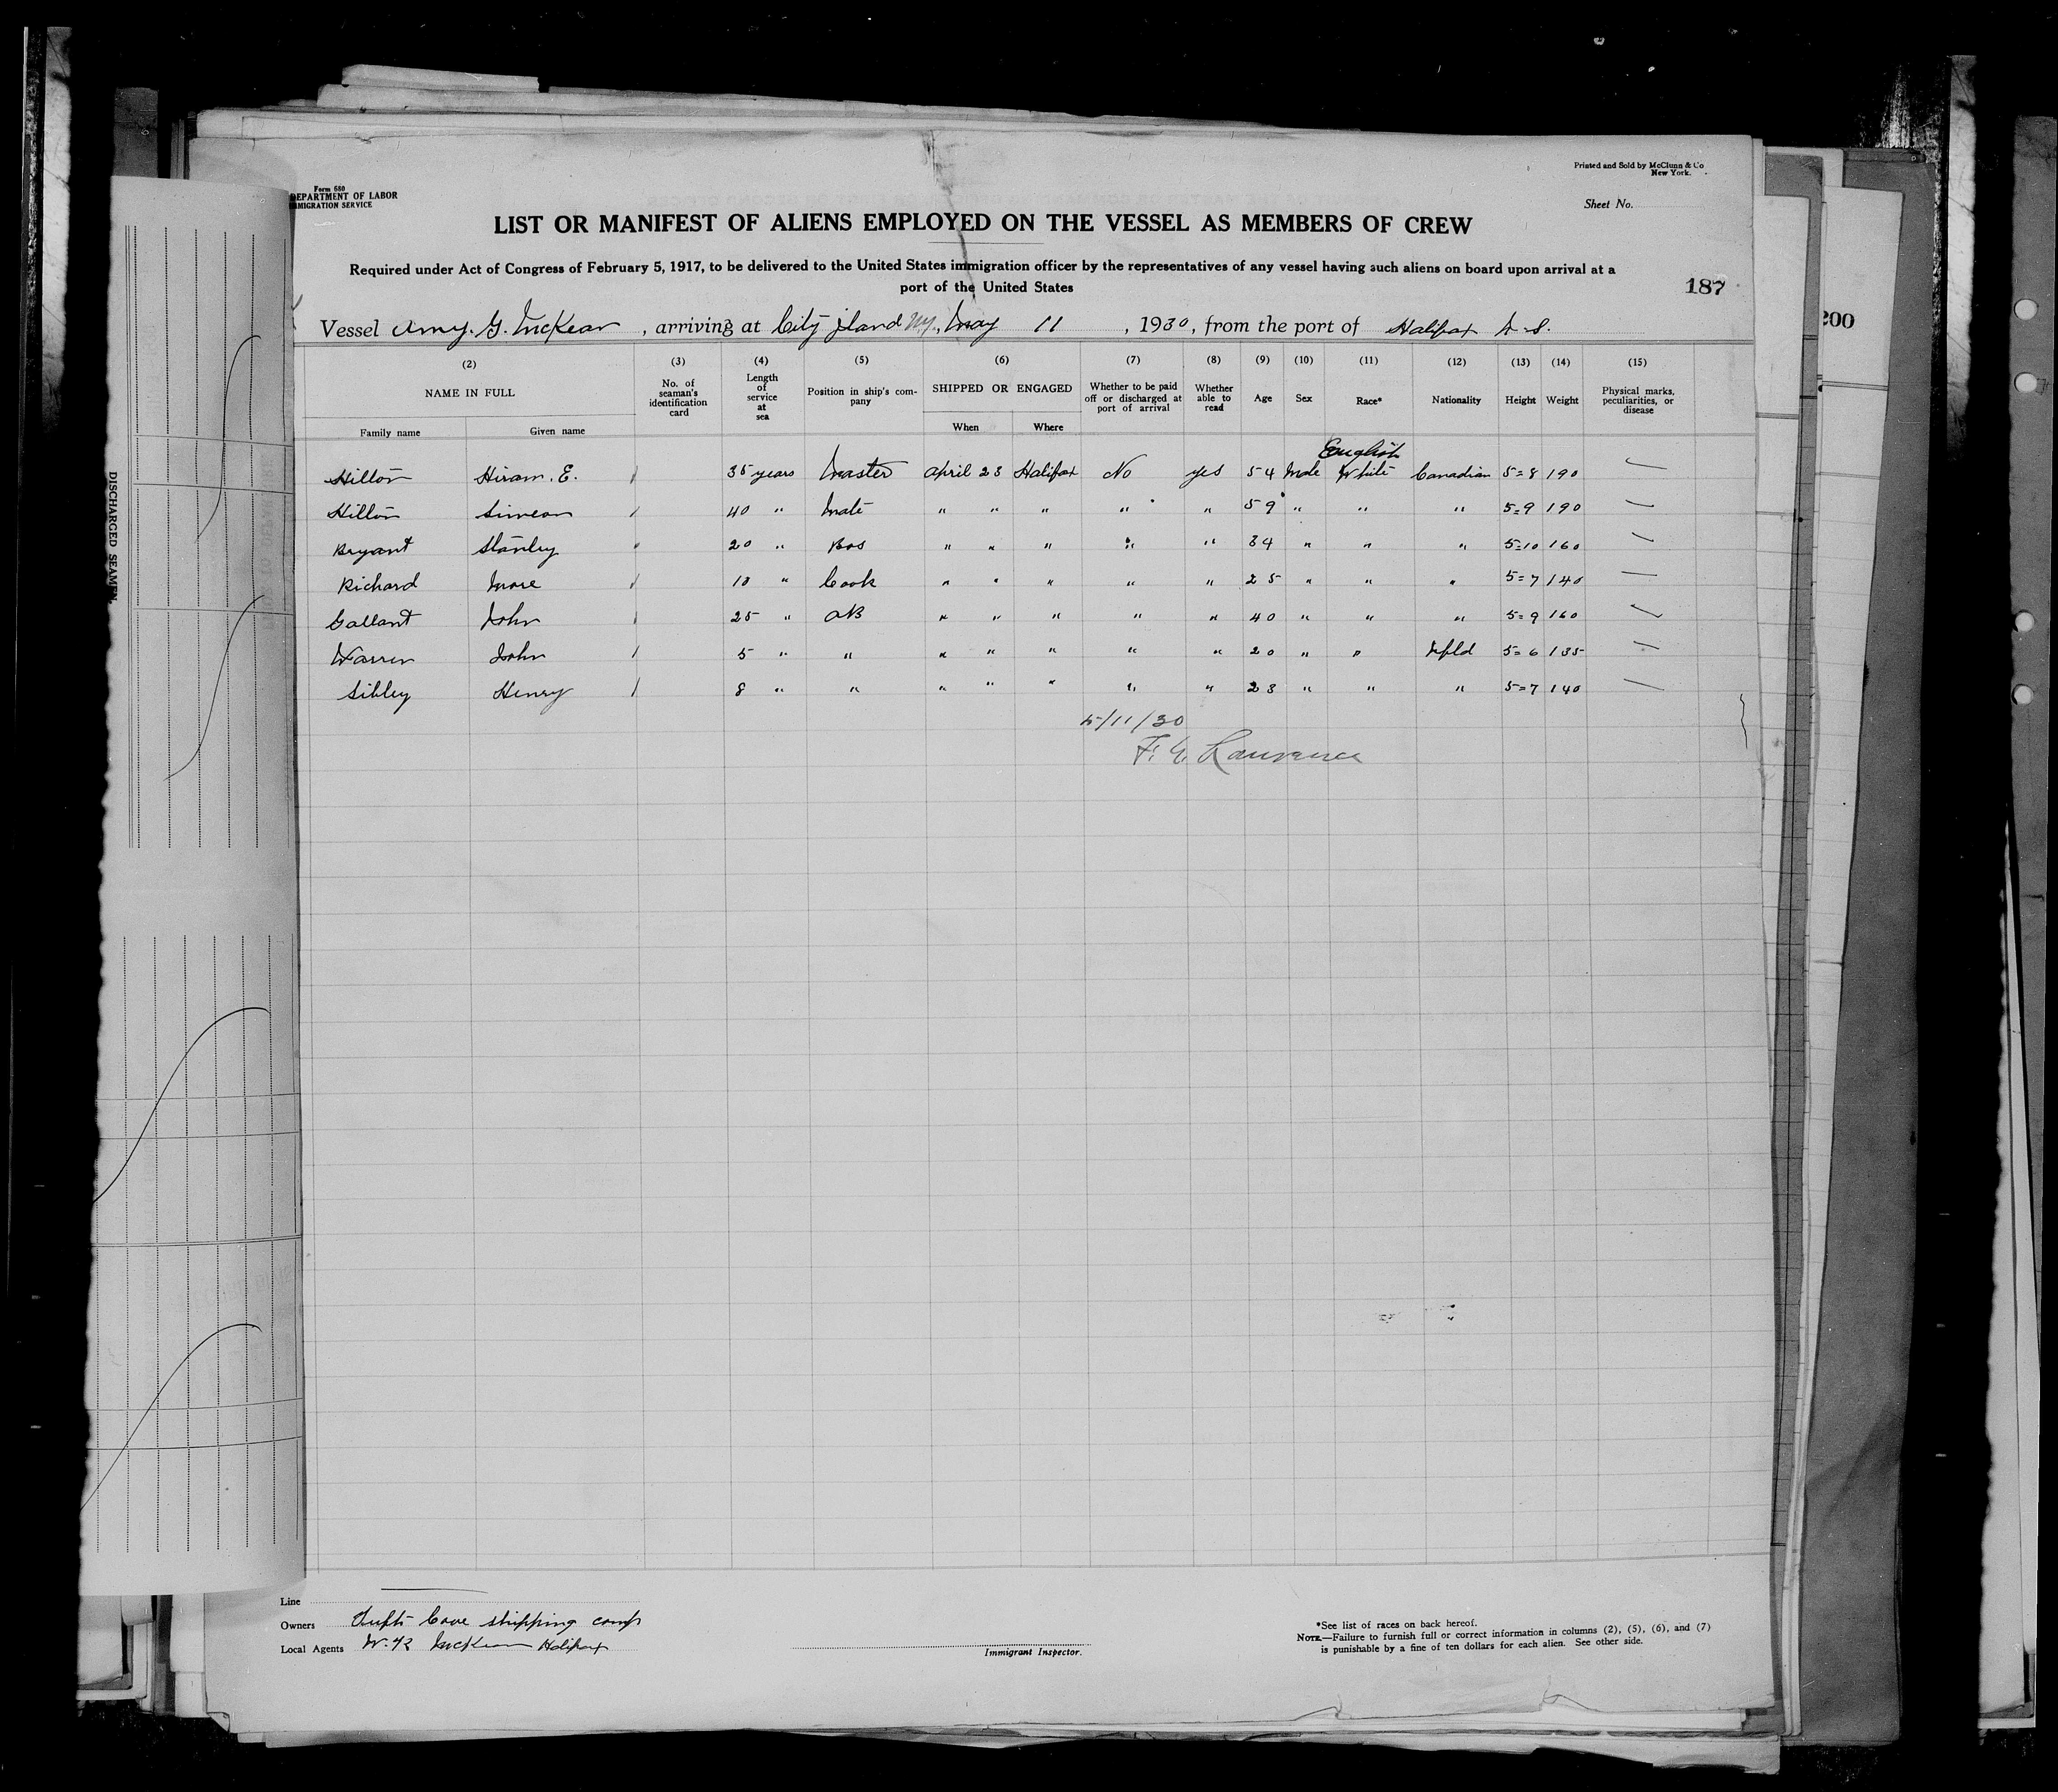 Printed and Sold by McClunn & Co
New York.
Form 680
DEPARTMENT OF LABOR
IMMIGRATION SERVICE
Sheet No.
LIST OR MANIFEST OF ALIENS EMPLOYED ON THE VESSEL AS MEMBERS OF CREW
Required under Act of Congress of February 5, 1917, to be delivered to the United States immigration officer by the representatives of any vessel having such aliens on board upon arrival at a
port of the United States
187
200
Vessel Amy. G. McKean, arriving at City island N.Y., May 11, 1930, from the port of Halifax N.S.
(2) (3) (4) (5) (6) (7) (8) (9) (10) (11) (12) (13) (14) (15)
NAME IN FULL No. of seaman's identification card Length of service at sea Position in ship's company SHIPPED OR ENGAGED Whether to be paid off or discharged at port of arrival Whether able to read Age Sex Race* Nationality Height Weight Physical marks, peculiarities, or disease
Family name Given name When Where
English
Hilton Hiram. E. 35 years Master April 23 Halifax No yes 54 Male White Canadian 5=8 190 —
Hilton Simeon 40 " Mate " " " " " 59 " " " 5=9 190 —
Bryant Stanley 20 " Bos " " " " " 34 " " " 5=10 160 —
Richard 10 " Cook " " " " " 25 " " " 5=7 140 —
Gallant John 25 " AB " " " " " 40 " " " 5=9 160 —
Warren John 5 " " " " " " " 20 " " Nfld 5=6 135 —
Sibley Henry 8 " " " " " " " 23 " " " 5=7 140 —
5/11/30
F. Laurence
DISCHARGED SEAMEN,
Line
Owners Tufts Cove shipping comp
Local Agents McKean Halifax
Immigrant Inspector.
*See list of races on back hereof.
NOTE.—Failure to furnish full or correct information in columns (2), (5), (6), and (7)
is punishable by a fine of ten dollars for each alien. See other side.